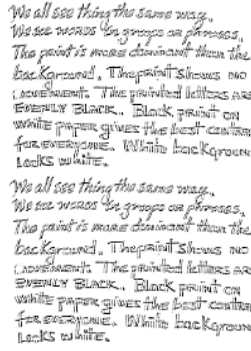 We all see thing the same way.
We see words in groups or phrases.
The print is more dominant than the
background. The print shows no
movement. The printed letters are
evenly black. Black print on
white paper gives the best contra
for everyone. White backgroun
looks white.
We all see thing the same way.
We see words in groups or phrases.
The print is more dominant than the
background. The print shows no
movement. The printed letters are
evenly black. Black print on
white paper gives the best contra
for everyone. White backgroun
looks white.